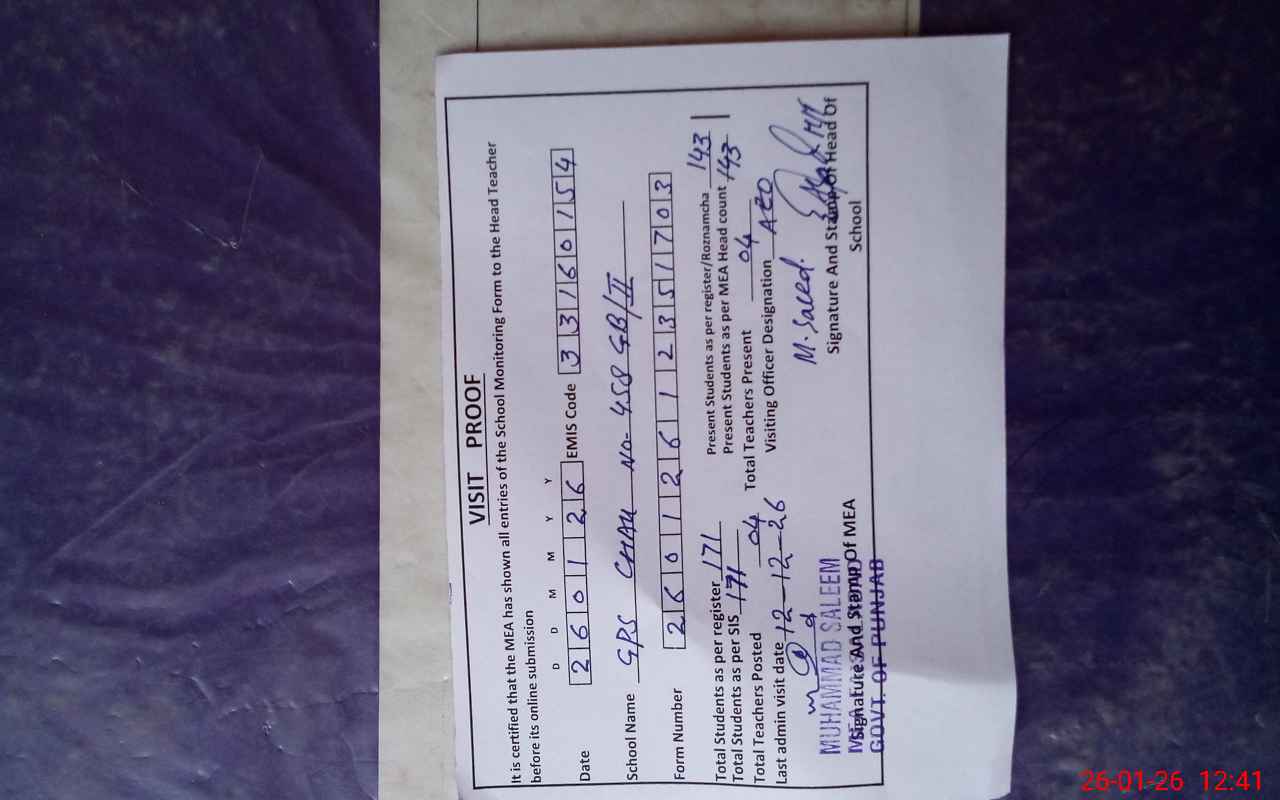 VISIT PROOF
It is certified that the MEA has shown all entries of the School Monitoring Form to the Head Teacher
before its online submission
D D M M Y Y
Date 2 6 0 1 2 6 EMIS Code 3 3 1 6 0 1 5 4
School Name GPS CHAK NO- 458 GB/II
Form Number 2 6 0 1 2 6 1 1 2 3 5 1 7 0 3
Total Students as per register 171 Present Students as per register/Roznamcha 143
Total Students as per SIS 171 Present Students as per MEA Head count 143
Total Teachers Posted 04 Total Teachers Present 04
Last admin visit date 12-12-26 Visiting Officer Designation AEO
M. Saeed.
MUHAMMAD SALEEM
Signature And Stamp Of MEA Signature And Stamp Of Head Of
School
GOVT. OF PUNJAB
26-01-26 12:41